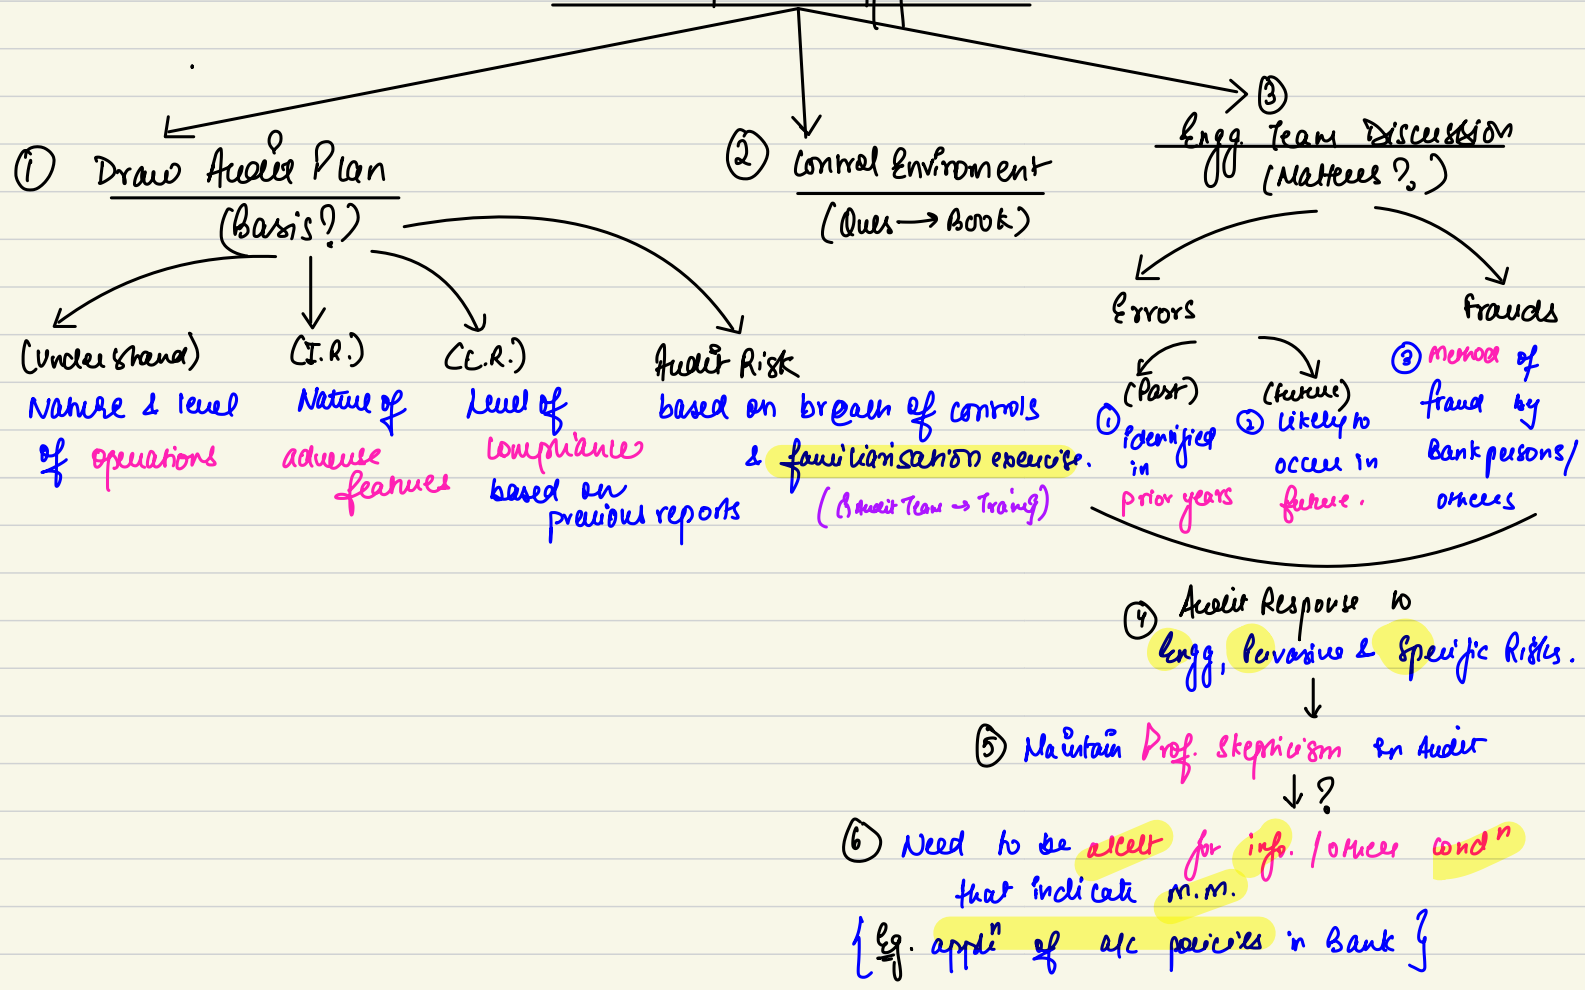 ① Draw Audit Plan
(Basis?)
(Understand)
Nature & level
of operations
(I.R.)
Nature of
adverse
features
(C.R.)
Level of
compliance
based on
previous reports
Audit Risk
based on breach of controls
& familiarisation exercise.
② Control Enviroment
(Ques → Book)
③
Engg. Team Discussion
(Matters?)
Errors
(Past)
① identified
in
prior years
(future)
② likely to
occur in
future.
Frauds
③ Method of
fraud by
Bank persons/
others
④ Audit Response to
Engg, Pervasive & Specific Risks.
⑤ Maintain Prof. Skepticism in Audit
?
⑥ Need to be alert for info. / other condn
that indicate m.m.
{ Eg. appln of a/c policies in Bank }